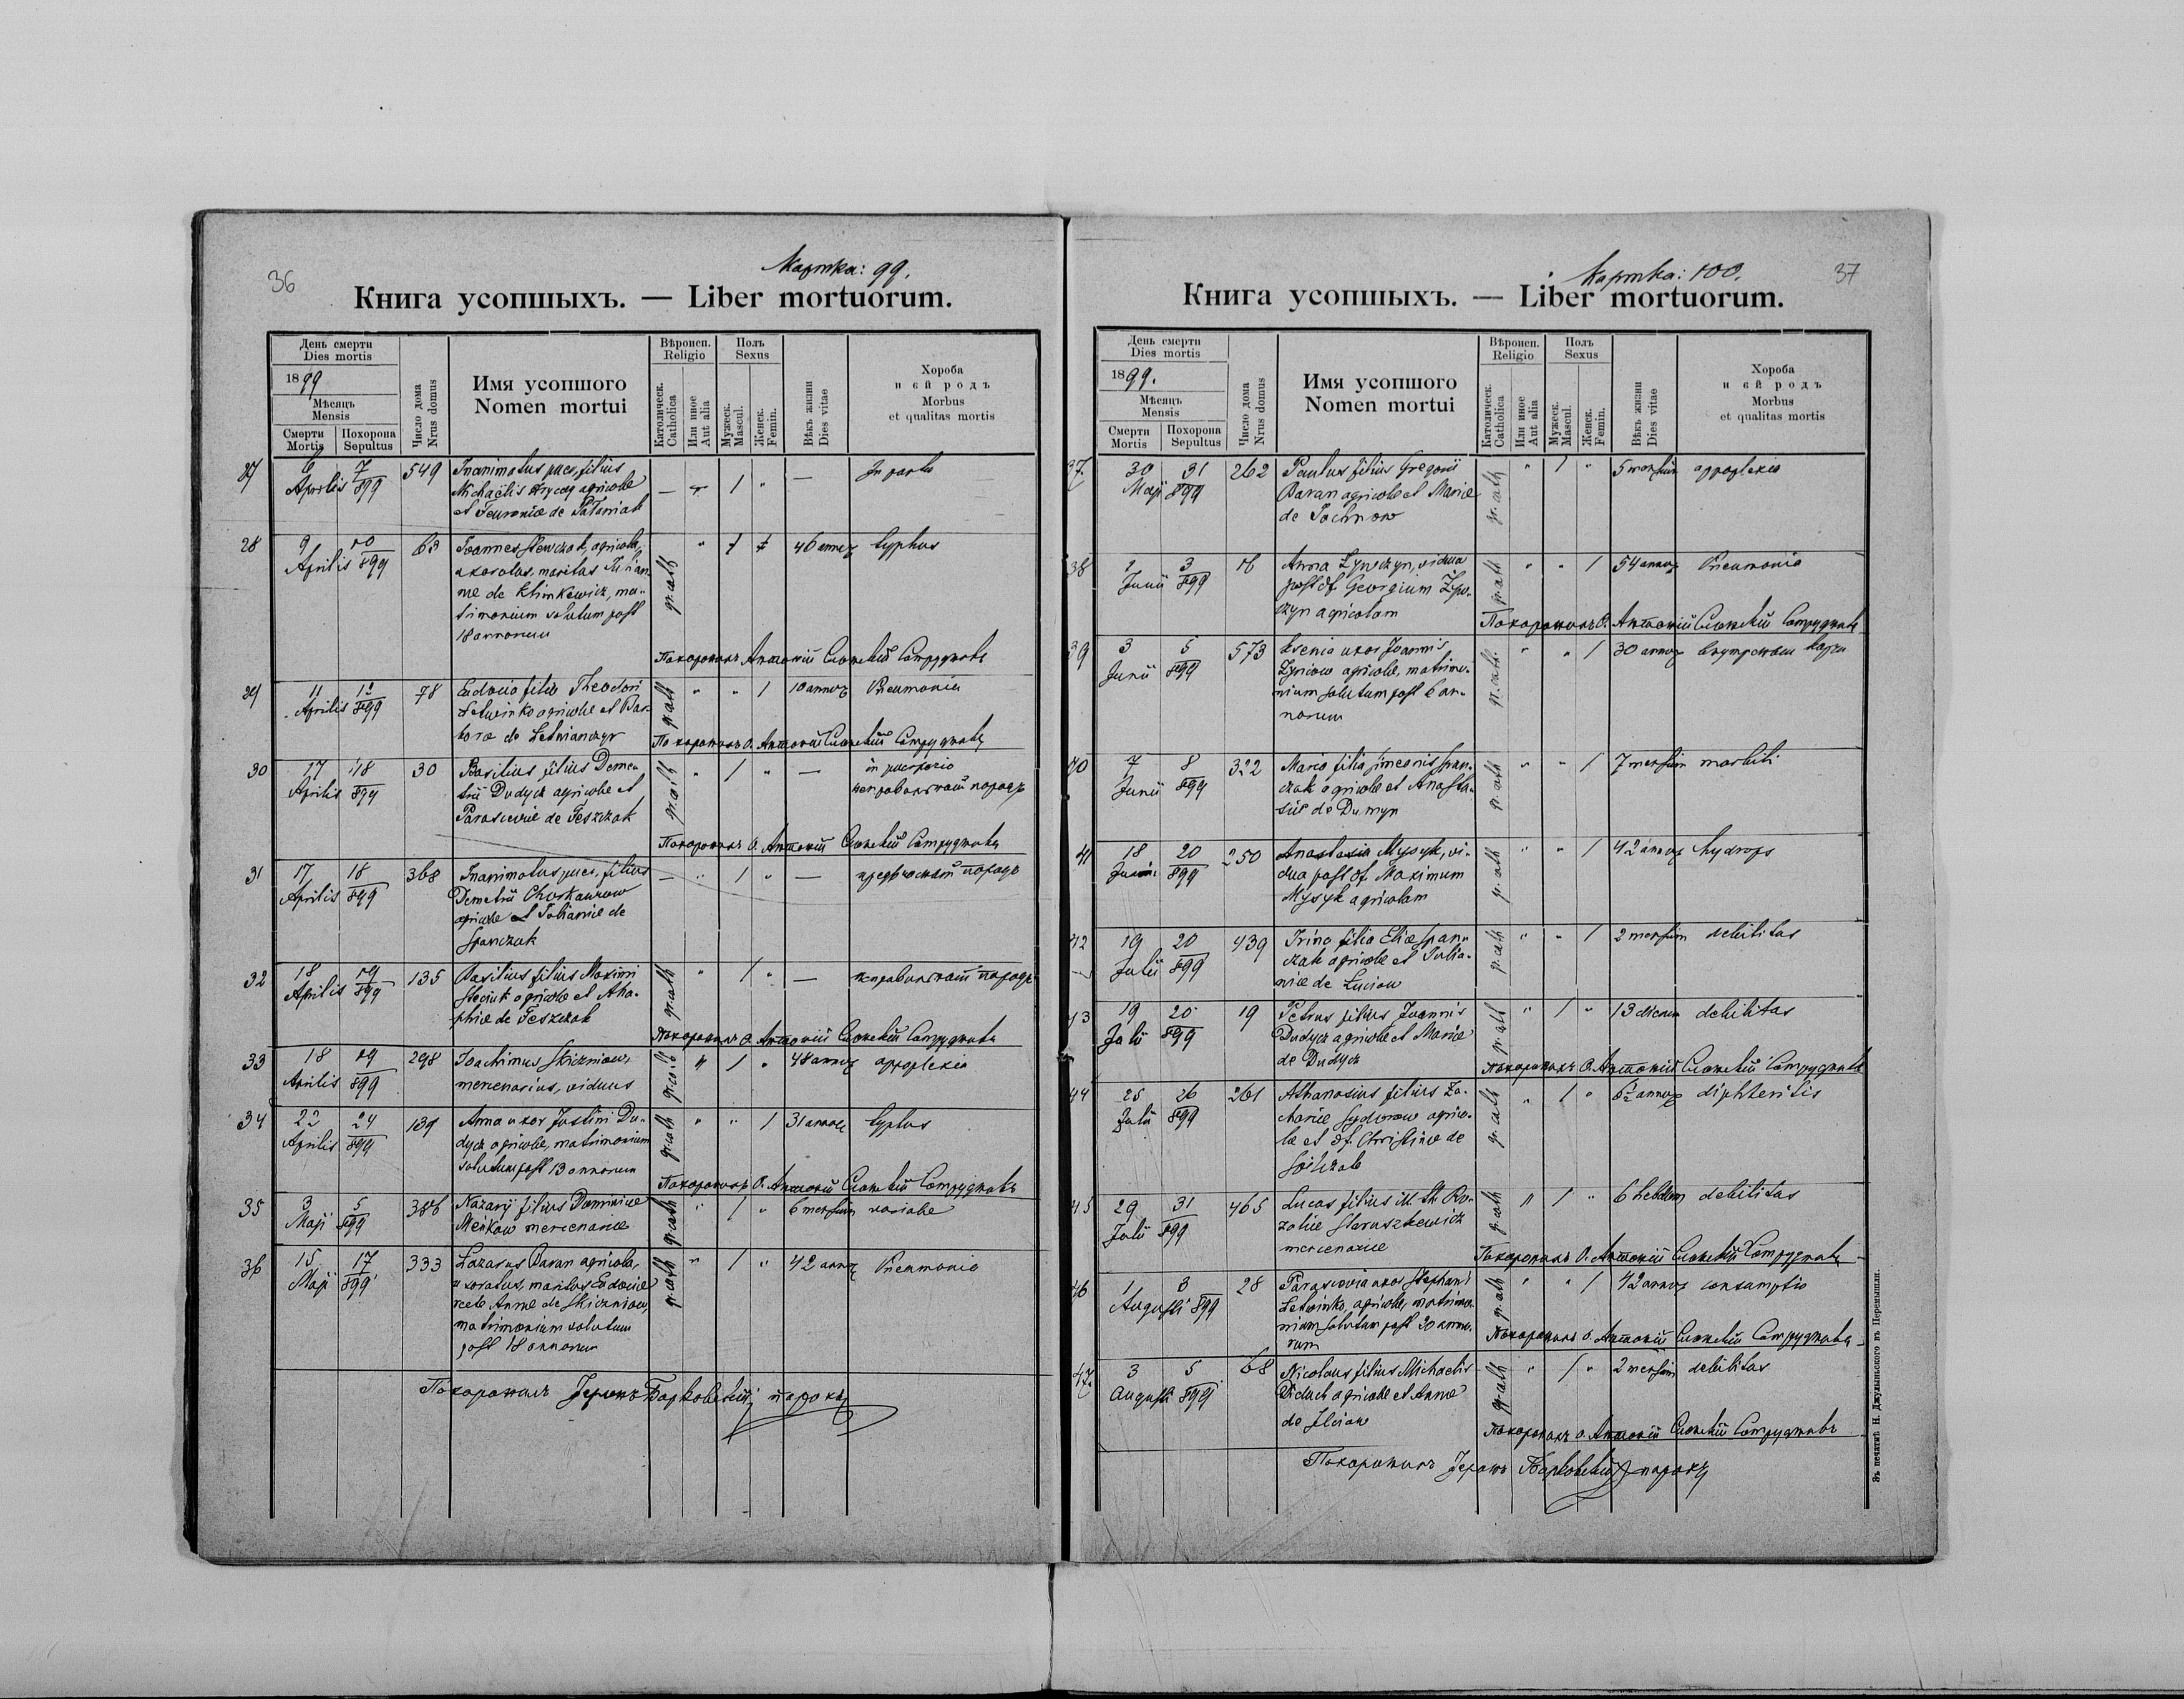 36
Картка: 99.
Книга усопшыхъ. — Liber mortuorum.
День смерти
Dies mortis
1899
Мѣсяцъ
Mensis
Смерти
Mortis
Похорона
Sepultus
Число дома
Nrus domus
Имя усопшого
Nomen mortui
Вѣроисп.
Religio
Католическ.
Catholica
Или иное
Aut alia
Полъ
Sexus
Мужеск.
Mascul.
Женск.
Femin.
Вѣкъ жизни
Dies vitae
Хороба
и єй родъ
Morbus
et qualitas mortis
27 6 Aprilis 7 899 549 Inanimatus puer, filius — " 1 " — In partu
Michaëlis agricolae
et Feuroniae de
28 9 Aprilis 10 899 63 Joannes Stewczak, agricola, gr. cath " 1 46 annor typhus
uxoratus, maritus
de Klimkewicz, ma-
trimonium solutum post
18 annorum
Похоронилъ Антоній Сотрудникъ
29 11 Aprilis 12 899 78 Eudocia filia Theodori gr. cath " " 1 10 annor Pneumonia
Letwinko agricolae et Bar-
barae de Letwianczyn
Похоронилъ О. Антоній Сотрудникъ
30 17 Aprilis 18 899 30 Basilius filius Deme- gr. cath " 1 " — in puerperio
trii Dudycz agricolae et неправильный породъ
Parasceviae de Feszczak
Похоронилъ О. Антоній Сотрудникъ
31 17 Aprilis 18 899 368 Inanimatus puer, filius — " 1 " — породъ
Demetrii
agricolae et Julianae de
Spanczak
32 18 Aprilis 19 899 135 Basilius filius Maximi gr. cath " 1 " — неправильный породъ
agricolae et Aha-
phiae de Feszczak
Похоронилъ О. Антоній Сотрудникъ
33 18 Aprilis 19 899 298 Joachimus Skiczniow gr. cath " 1 " 48 annor appoplexia
mercenarius, viduus
34 22 Aprilis 24 899 139 Anna uxor Justini Du- gr. cath " " 1 31 annor typhus
dycz agricolae, matrimonium
solutum post 13 annorum
Похоронилъ О. Антоній Сотрудникъ
35 3 Maji 5 899 386 Nazarij filius Dominicae gr. cath " 1 " 6 mensium variolae
mercenariae
36 15 Maji 17 899 333 Lazarus Baran agricola, gr. cath " 1 " 42 annor Pneumonia
uxoratus, maritus Eudociae
recte Annae de Skiczniow,
matrimonium solutum
post 18 annorum
Похоронилъ Іеронъ Барковскій парохъ
37
Картка: 100.
Книга усопшыхъ. — Liber mortuorum.
День смерти
Dies mortis
1899.
Мѣсяцъ
Mensis
Смерти
Mortis
Похорона
Sepultus
Число дома
Nrus domus
Имя усопшого
Nomen mortui
Вѣроисп.
Religio
Католическ.
Catholica
Или иное
Aut alia
Полъ
Sexus
Мужеск.
Mascul.
Женск.
Femin.
Вѣкъ жизни
Dies vitae
Хороба
и єй родъ
Morbus
et qualitas mortis
37 30 Maji 31 899 262 Paulus filius Gregorii gr. cath " 1 " 5 mensium appoplexia
Baran agricolae et Mariae
de
38 Junii 3 899 16 Anna vidua gr. cath " " 1 54 annor Pneumonia
post df. Georgium
agricolam
Похоронилъ О. Антоній Сотрудникъ
39 3 Junii 5 899 573 Ksenia uxor Joannis gr. cath. " " 1 30 annor
agricolae, matrimo-
nium solutum post 6 an-
norum
40 7 Junii 8 899 322 Maria filia Simeonis Span- gr. cath " " 1 7 mensium morbili
czak agricolae et Anasta-
siae de Dumyn
41 18 Junii 20 899 250 Anastasia Mysyk, vi- gr. cath " " 1 42 annor hydrops
dua post df. Maximum
Mysyk agricolam
42 19 Julii 20 899 439 Irina filia Eliae Span- gr. cath " " 1 2 mensium debilitas
czak agricolae et Julia-
nae de Luciow
43 19 Julii 20 899 19 Petrus filius Joannis gr. cath " 1 " 13 dierum debilitas
Dudycz agricolae et Mariae
de Dudycz
Похоронилъ О. Антоній Сотрудникъ
44 25 Julii 26 899 261 Athanasius filius Za- gr. cath " 1 " annor diphteritis
chariae Sydorow agrico-
lae et df. Christinae de
45 29 Julii 31 899 465 Lucas filius ill. th. Ro- gr. cath " 1 " 6 hebdom debilitas
zaliae Staruszkewicz
mercenariae
Похоронилъ О. Антоній Сотрудникъ
46 1 Augusti 3 899 28 Parascevia uxor Stephani gr. cath " " 1 42 annor consumptio
Letwinko, agricolae, matrimo-
nium solutum post 20 anno-
rum
Похоронилъ О. Антоній Сотрудникъ
47 3 Augusti 5 899 68 Nicolaus filius Michaelis gr. cath " 1 " 2 mensium debilitas
Diduch agricolae et Annae
de Ilciow
Похоронилъ О. Антоній Сотрудникъ
Похоронилъ Іеронъ Барковскій парохъ
Зъ печатнѣ Н. Джулыньского въ Перемышли.